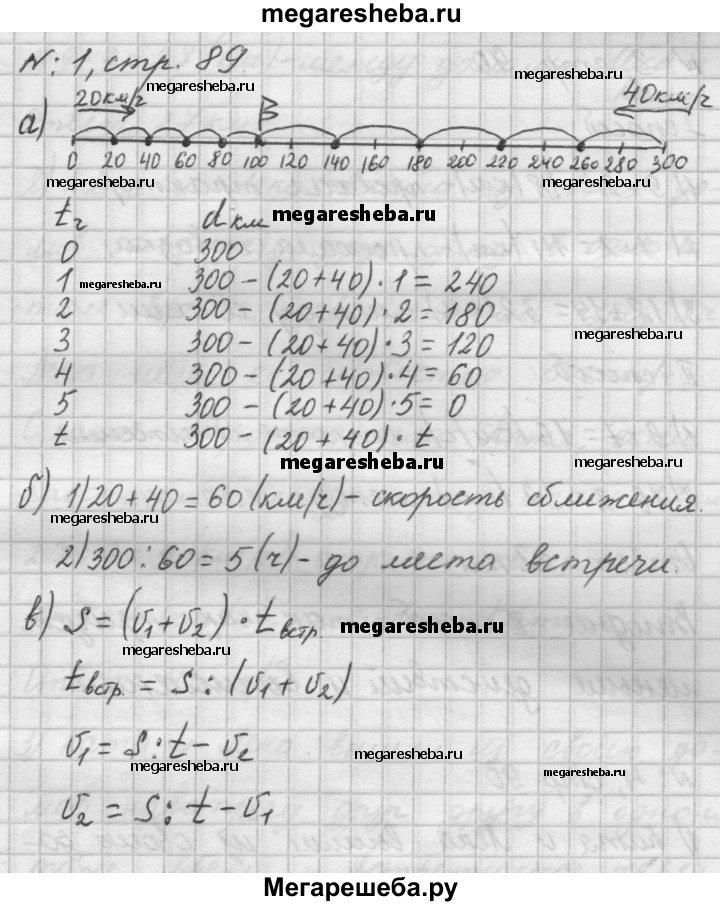 megaresheba.ru
N: 1, стр. 89
megaresheba.ru
megaresheba.ru
20км/ч
40км/ч
а)
0 20 40 60 80 100 120 140 160 180 200 220 240 260 280 300
megaresheba.ru
megaresheba.ru
t ч d км
megaresheba.ru
0 300
1 300 - (20+40) · 1 = 240
megaresheba.ru
2 300 - (20+40) · 2 = 180
megaresheba.ru
3 300 - (20+40) · 3 = 120
4 300 - (20+40) · 4 = 60
5 300 - (20+40) · 5 = 0
t 300 - (20 + 40) · t
megaresheba.ru
megaresheba.ru
б) 1) 20 + 40 = 60 (км/ч) - скорость сближения.
megaresheba.ru
2) 300 : 60 = 5 (ч) - до места встречи.
в) s = (v₁ + v₂) · t встр.
megaresheba.ru
megaresheba.ru
t встр. = s : (v₁ + v₂)
v₁ = s : t - v₂
megaresheba.ru
megaresheba.ru
megaresheba.ru
v₂ = s : t - v₁
Мегарешеба.ру